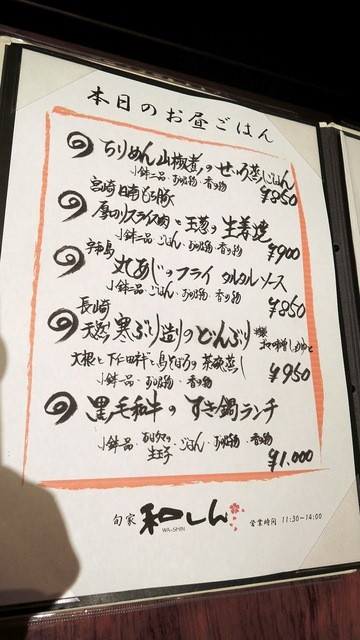 本日のお昼ごはん
ちりめん山椒煮のせいろ蒸しごはん
小鉢二品・お吸物・香の物
¥850
宮崎日南もち豚
厚切りスライス肉と玉葱の生姜焼
小鉢二品・ごはん・お吸物・香の物
¥900
宇和島
丸あじのフライ タルタルソース
小鉢二品・ごはん・お吸物・香の物
¥850
長崎
天然寒ぶり造りのどんぶり
大根と下仁田ネギと鳥そぼろの茶碗蒸し
小鉢一品・お吸物・香の物
¥950
黒毛和牛のすき鍋ランチ
小鉢一品・ごはん・お吸物・香の物
生玉子
¥1.000
旬家 和しん
WA-SHIN
営業時間 11:30~14:00